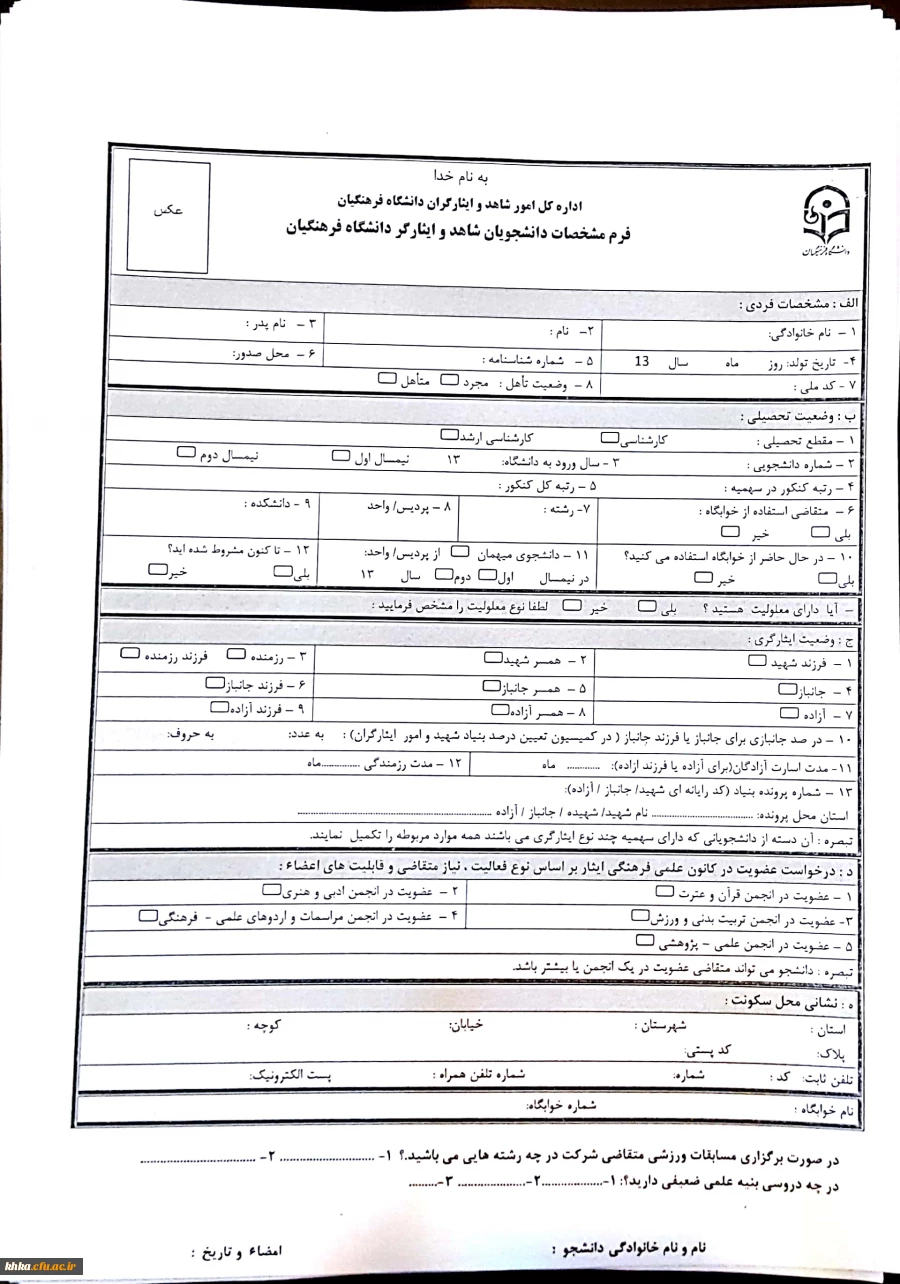 به نام خدا
عکس
اداره کل امور شاهد و ایثارگران دانشگاه فرهنگیان
فرم مشخصات دانشجویان شاهد و ایثارگر دانشگاه فرهنگیان
دانشگاه فرهنگیان
الف : مشخصات فردی :
۱ – نام خانوادگی: ۲- نام : ۳ – نام پدر :
۴- تاریخ تولد: روز ماه سال 13 ۵ – شماره شناسنامه : ۶ – محل صدور:
۷ - کد ملی : ۸ – وضعیت تأهل : مجرد متأهل
ب : وضعیت تحصیلی :
۱ – مقطع تحصیلی : کارشناسی کارشناسی ارشد
۲ – شماره دانشجویی : ۳ - سال ورود به دانشگاه: ۱۳ نیمسال اول نیمسال دوم
۴ – رتبه کنکور در سهمیه : ۵ – رتبه کل کنکور :
۶ – متقاضی استفاده از خوابگاه : ۷- رشته : ۸ – پردیس/ واحد ۹ - دانشکده :
بلی خیر
۱۰ – در حال حاضر از خوابگاه استفاده می کنید؟ ۱۱ – دانشجوی میهمان از پردیس/ واحد: ۱۲ – تا کنون مشروط شده اید؟
بلی خیر در نیمسال اول دوم سال ۱۳ بلی خیر
– آیا دارای معلولیت هستید ؟ بلی خیر لطفا نوع معلولیت را مشخص فرمایید :
ج : وضعیت ایثارگری :
۱ – فرزند شهید ۲ – همسر شهید ۳ – رزمنده فرزند رزمنده
۴ – جانباز ۵ – همسر جانباز ۶ – فرزند جانباز
۷ – آزاده ۸ – همسر آزاده ۹ – فرزند آزاده
۱۰ – در صد جانبازی برای جانباز یا فرزند جانباز ( در کمیسیون تعیین درصد بنیاد شهید و امور ایثارگران) : به عدد: به حروف:
۱۱- مدت اسارت آزادگان(برای آزاده یا فرزند ازاده): ............ ماه ۱۲ – مدت رزمندگی ..............ماه
۱۳ – شماره پرونده بنیاد (کد رایانه ای شهید/ جانباز / آزاده):
استان محل پرونده: .................................. نام شهید/ شهیده / جانباز / آزاده ..................................................................
تبصره : آن دسته از دانشجویانی که دارای سهمیه چند نوع ایثارگری می باشند همه موارد مربوطه را تکمیل نمایند.
د : درخواست عضویت در کانون علمی فرهنگی ایثار بر اساس نوع فعالیت ، نیاز متقاضی و قابلیت های اعضاء :
۱ – عضویت در انجمن قرآن و عترت ۲ – عضویت در انجمن ادبی و هنری
۳- عضویت در انجمن تربیت بدنی و ورزش ۴ – عضویت در انجمن مراسمات و اردوهای علمی – فرهنگی
۵ – عضویت در انجمن علمی – پژوهشی
تبصره : دانشجو می تواند متقاضی عضویت در یک انجمن یا بیشتر باشد.
ه : نشانی محل سکونت :
استان : شهرستان : خیابان: کوچه :
پلاک: کد پستی:
تلفن ثابت: کد : شماره: شماره تلفن همراه : پست الکترونیک:
نام خوابگاه : شماره خوابگاه:
در صورت برگزاری مسابقات ورزشی متقاضی شرکت در چه رشته هایی می باشید.؟ ۱- ............................... ۲- ......................................
در چه دروسی بنیه علمی ضعیفی دارید؟: ۱-....................۲-...................... ۳-.........
نام و نام خانوادگی دانشجو : امضاء و تاریخ :
khka.cfu.ac.ir